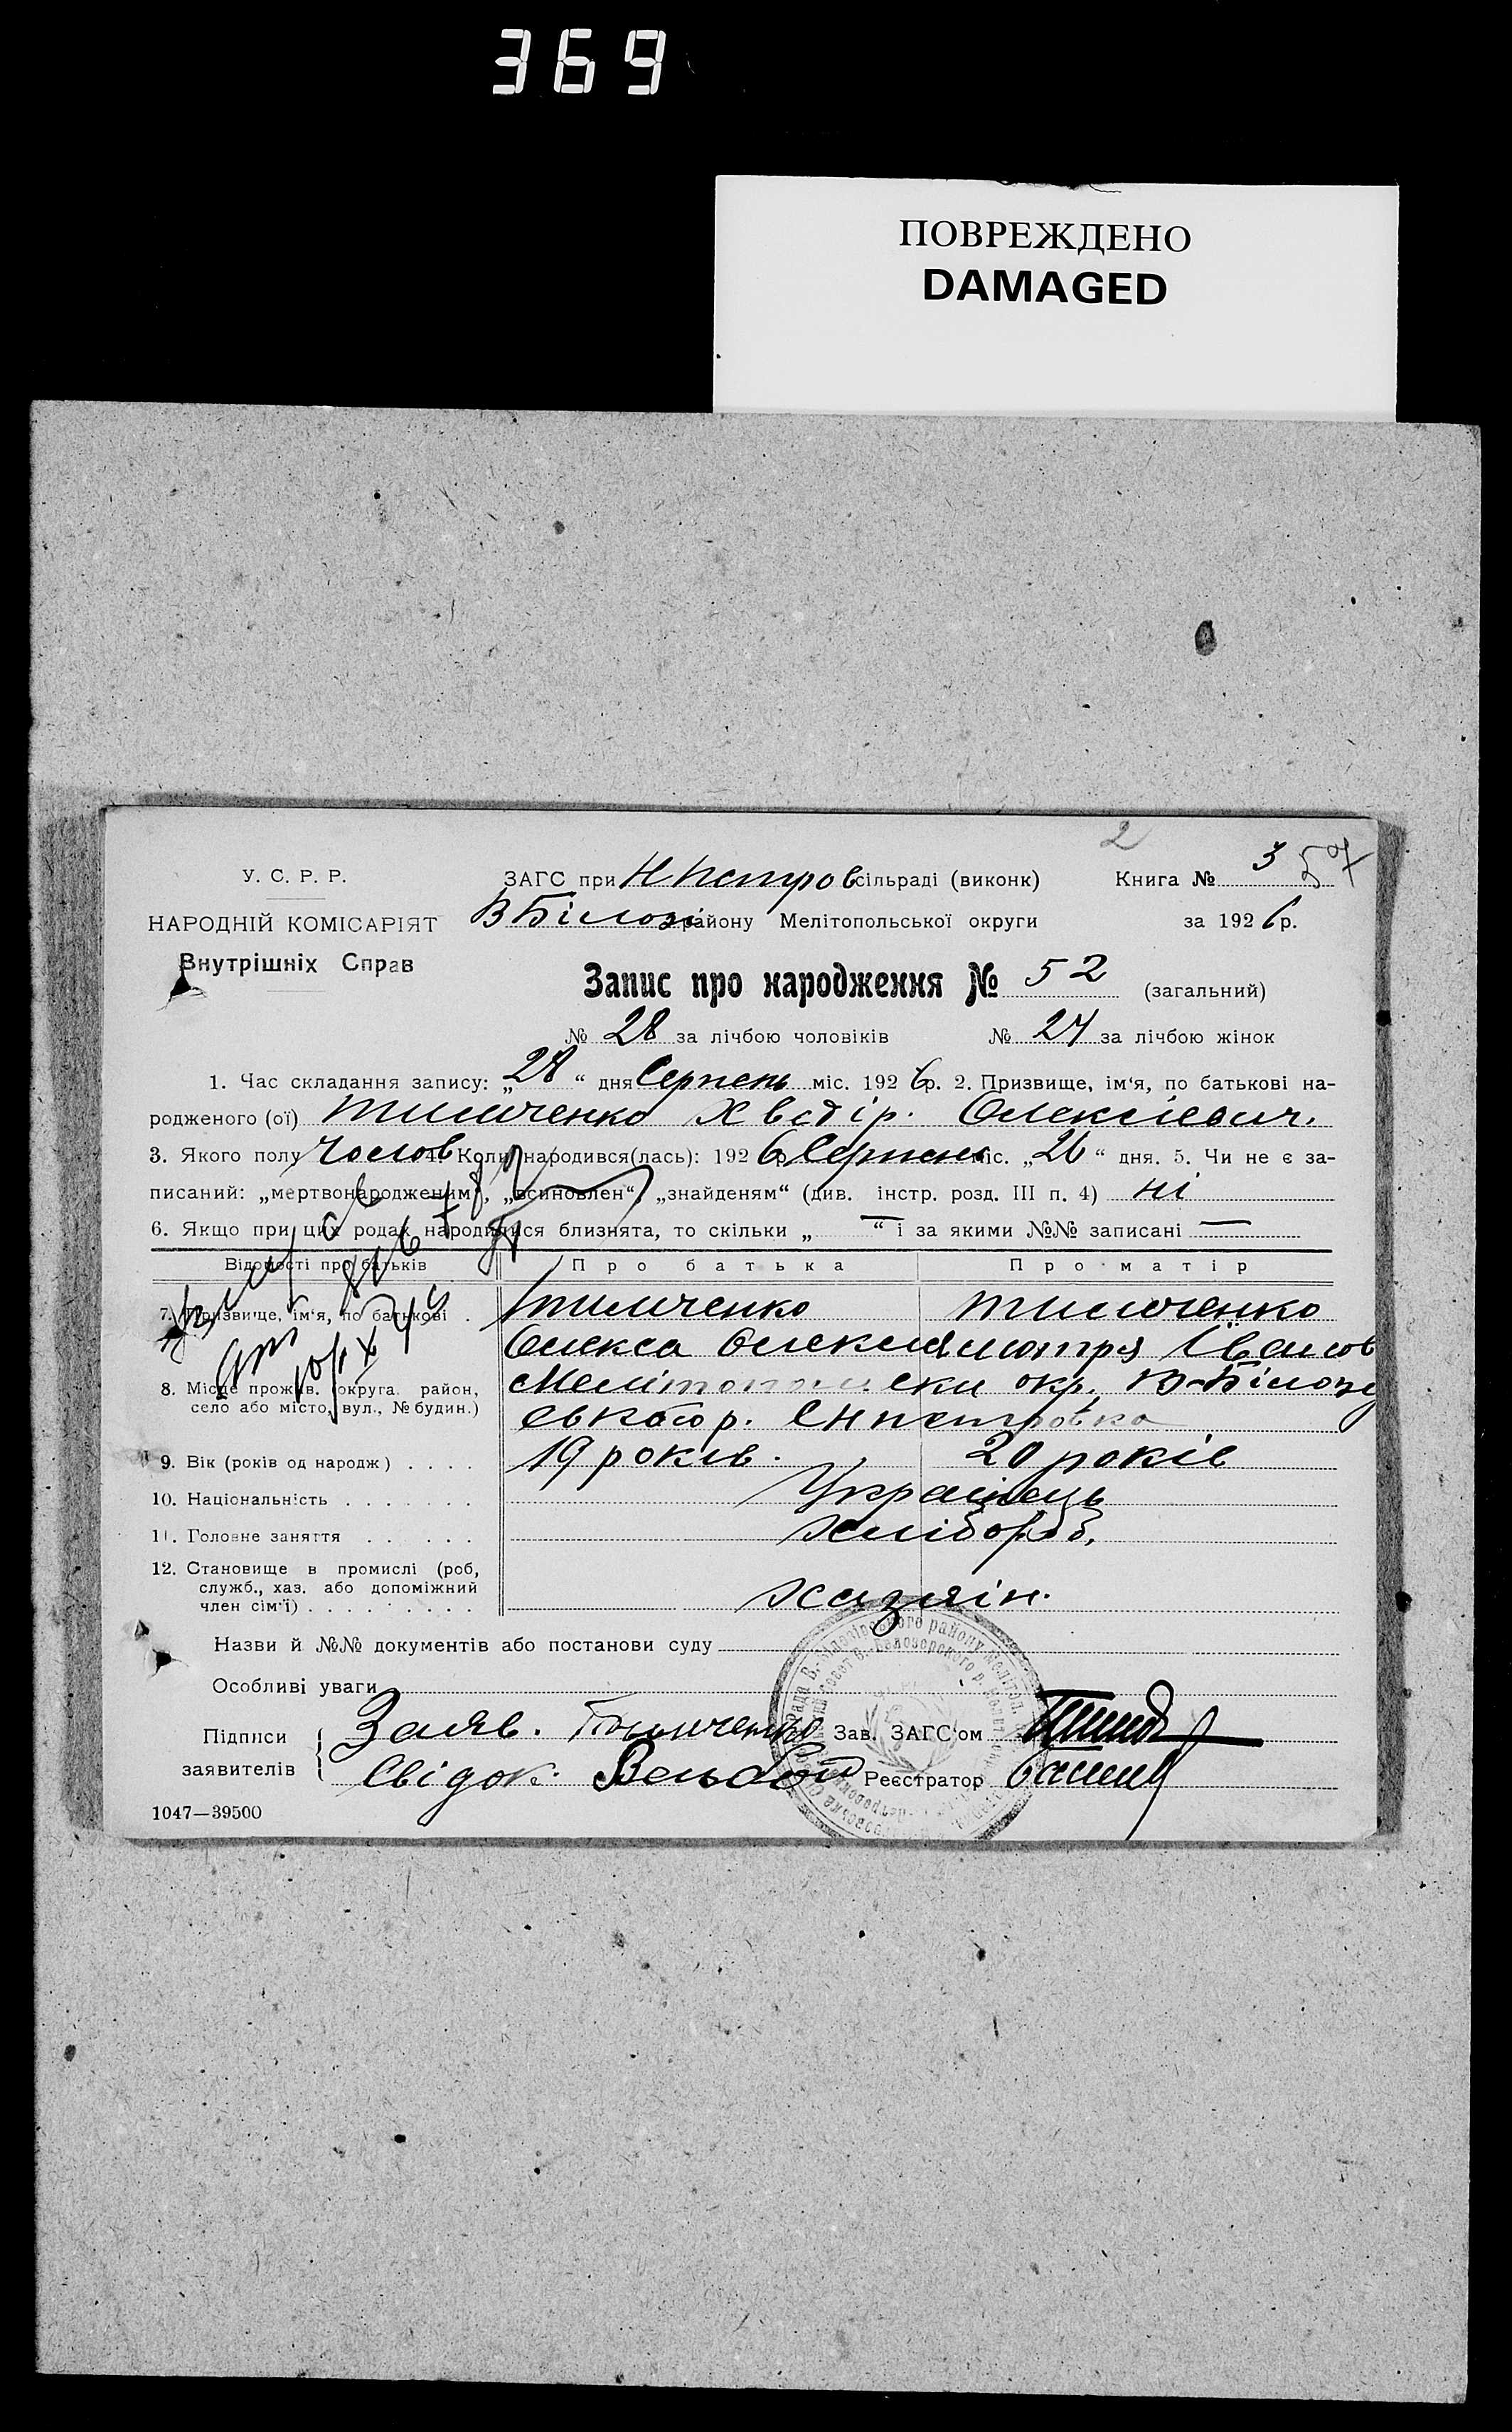 369
ПОВРЕЖДЕНО
DAMAGED
2
У. С. Р. Р.
ЗАГС при Н Петров сільраді (виконк)
Книга № 3 57
НАРОДНІЙ КОМІСАРІЯТ
В Білозі району Мелітопольської округи
за 1926 р.
Внутрішніх Справ
Запис про народження № 52 (загальний)
№ 28 за лічбою чоловіків № 24 за лічбою жінок
1. Час складання запису: „28“ дня Серпень міс. 1926 р. 2. Призвище, ім'я, по батькові на-
родженого (ої) Тимченко Хведір. Олексієвич.
3. Якого полу Чолов 4. Коли народився(лась): 1926 р. Серпень міс. „26“ дня. 5. Чи не є за-
писаний: „мертвонародженим“, „всиновлен“, „знайденям“ (див. інстр. розд. III п. 4) ні
6. Якщо при цих родах народилися близнята, то скільки „—“ і за якими №№ записані —
Відомості про батьків
Про батька
Про матір
7. Призвище, ім'я, по батькові .
Тимченко
Тимченко
Олекса Олексія
мотря Іванов
8. Місце прожив. (округа, район,
село або місто, вул., № будин.)
Мелітопольски окр. В-Білозе
евкаго р. С Н петровка
9. Вік (років од народж) . . . .
19 років.
20 років
10. Національність . . . . . . .
Українець
11. Головне заняття . . . . . .
хлібороб.
12. Становище в промислі (роб,
служб., хаз. або допоміжний
член сім'ї) . . . . . . . . .
хазяїн.
Назви й №№ документів або постанови суду
Особливі уваги
Підписи
заявителів
Заяв. Тимченко
Зав. ЗАГС'ом
Свідок.
Реєстратор
1047—39500